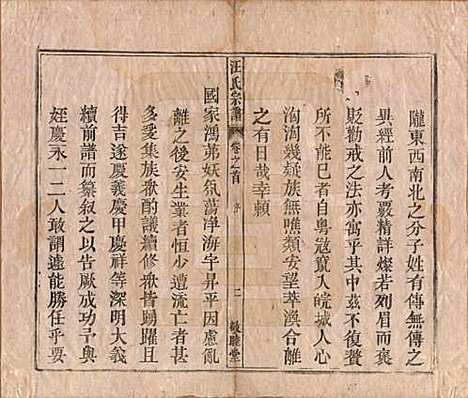 隴東西南北之分子姓有傳無傳之
異經前人考覈精詳燦若列眉而褒
貶勸戒之法亦寓乎其中茲不復贅
所不能已者自粵寇竄入皖城人心
洶洶幾疑族無噍類安望萃渙合離
之有日哉幸賴
汪氏宗譜
卷之首
序
二
敬睦堂
國家鴻茀妖氛蕩淨海宇昇平因慮亂
離之後安生業者恒少遭流亡者甚
多爰集族㪺酌議續修㪺皆踴躍且
得吉遂慶義慶甲慶祥等深明大義
續前譜而纂敘之以告厥成功予與
姪慶永一二人敢謂遽能勝任乎要